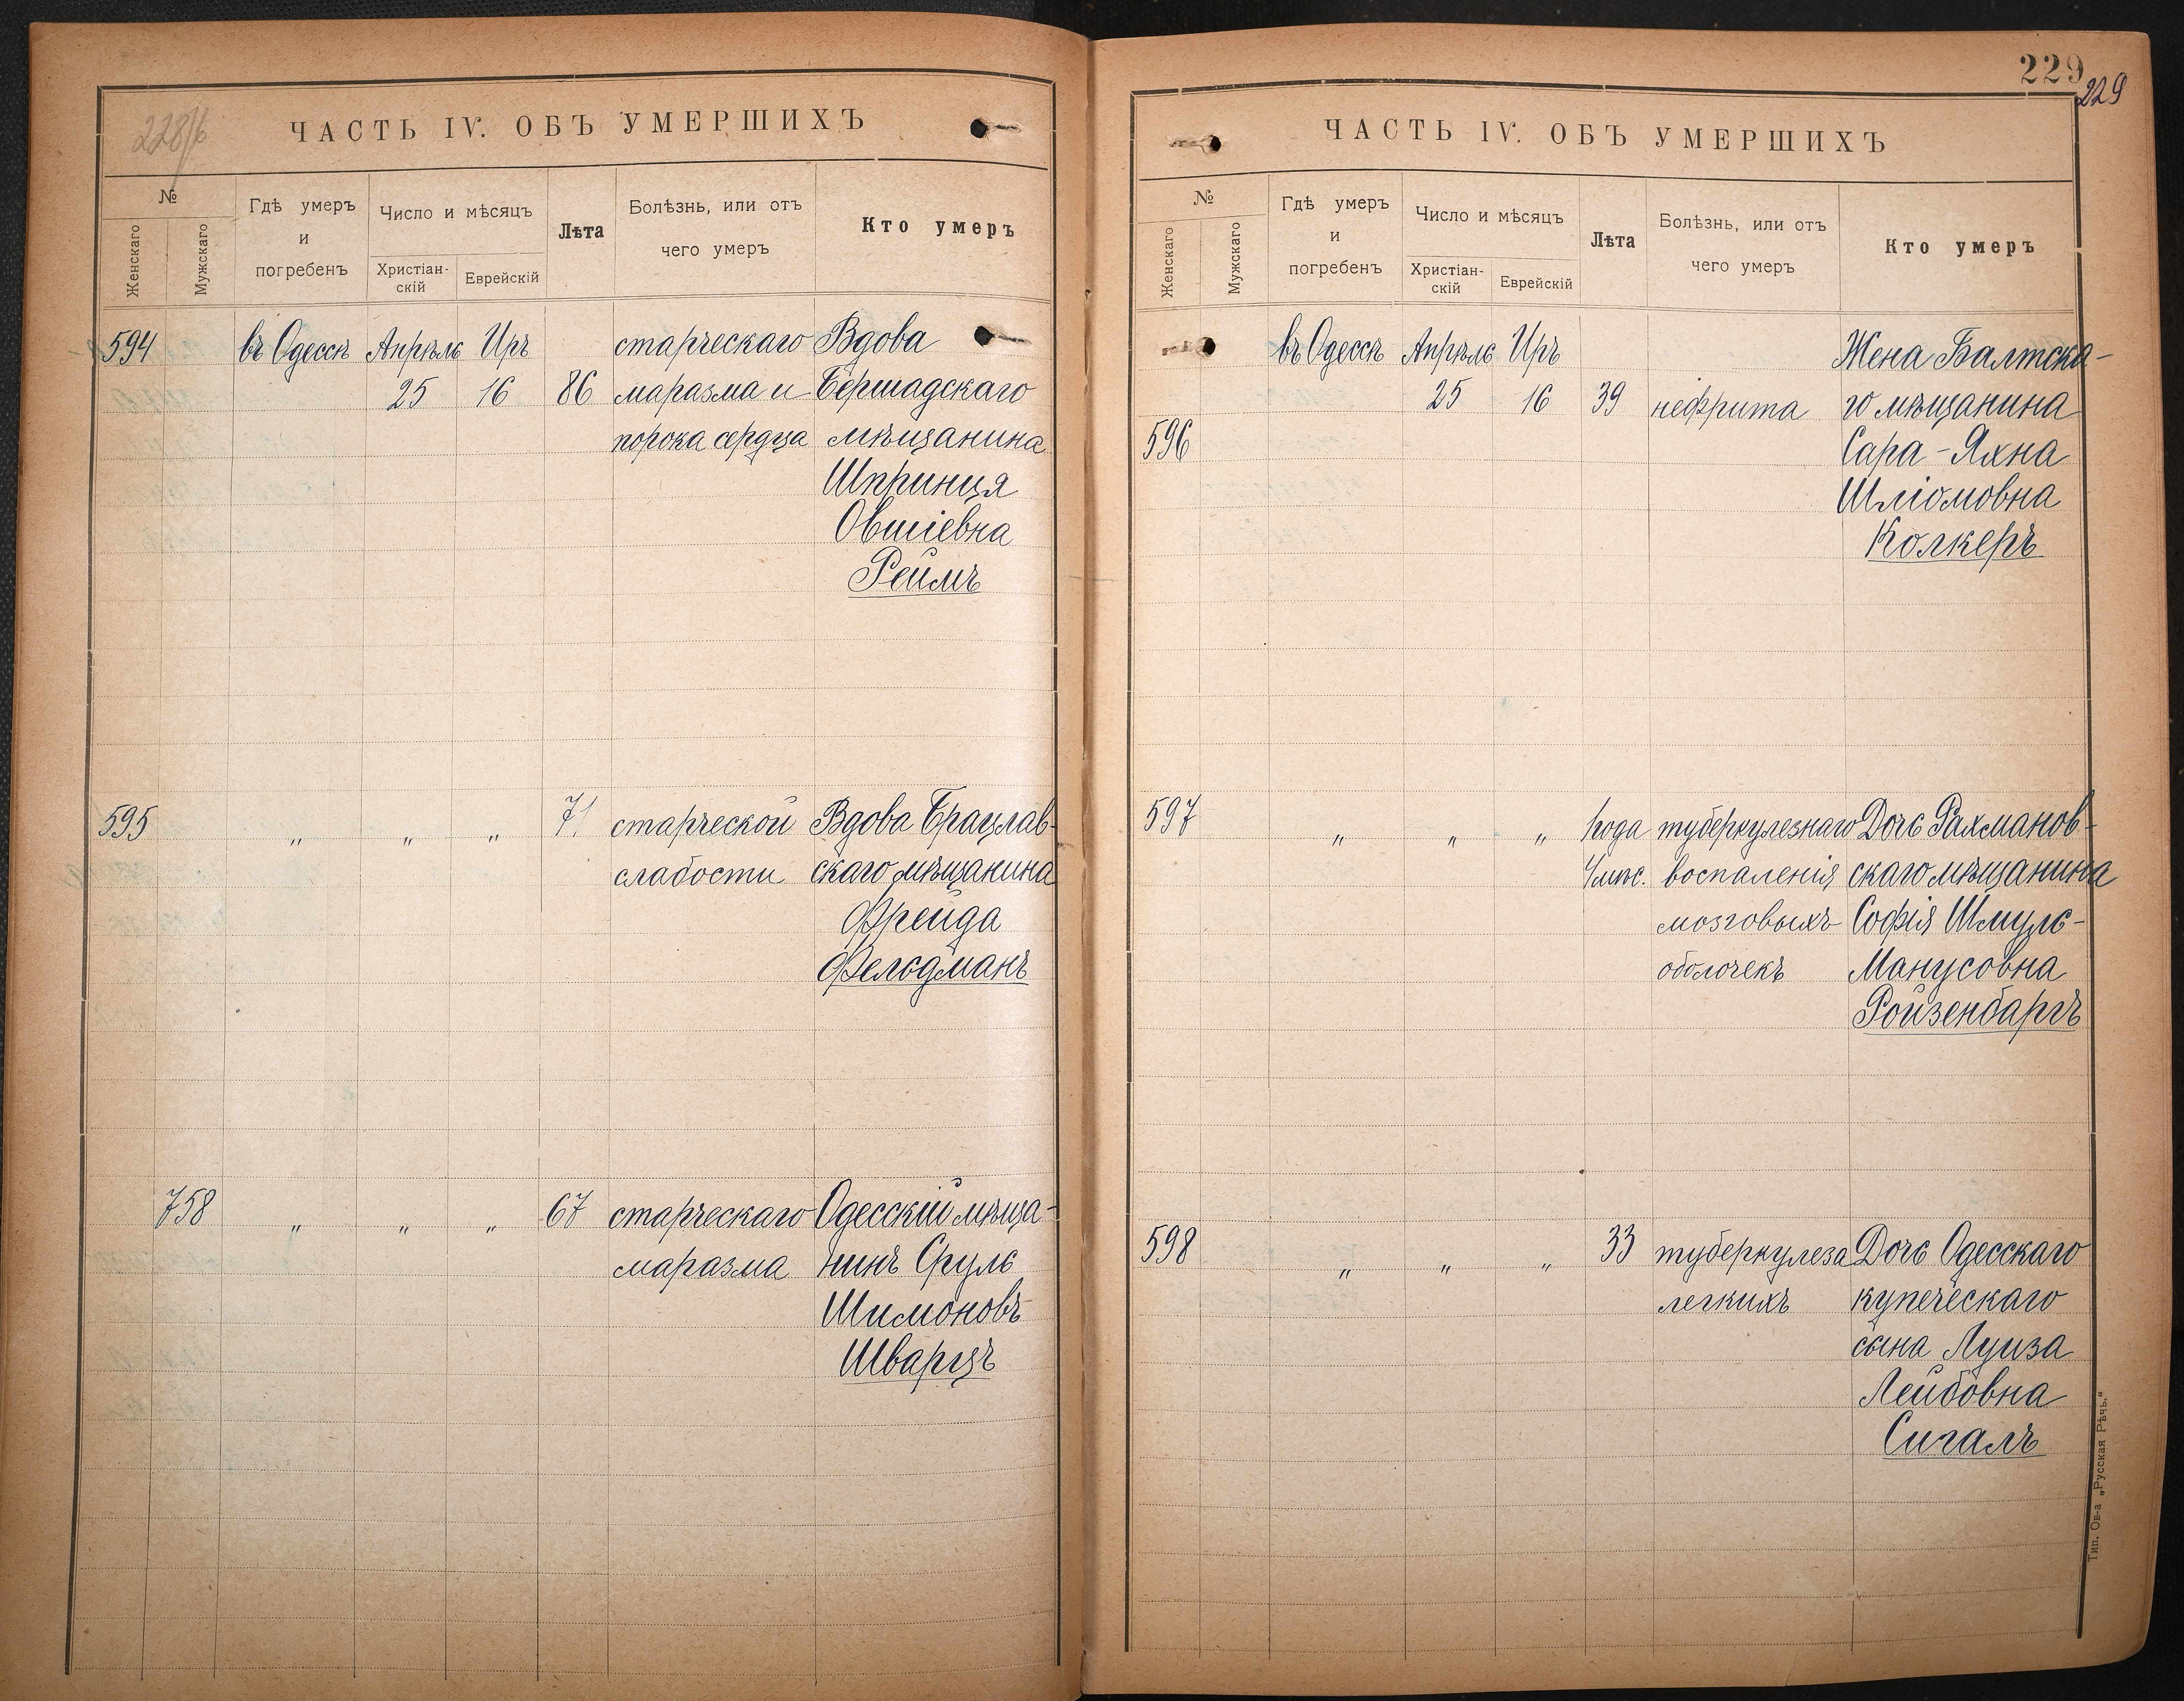 228/б
ЧАСТЬ IV. ОБЪ УМЕРШИХЪ
№
Женскаго
Мужскаго
Гдѣ умеръ
и
погребенъ
Число и мѣсяцъ
Христіан-
скій
Еврейскій
Лѣта
Болѣзнь, или отъ
чего умеръ
Кто умеръ
594 въ Одессѣ Апрѣль Иръ старческаго Вдова
25 16 86 маразма и Бершадскаго
порока сердца мѣщанина
Шпринця
Овшіевна
Реймъ
595 „ „ „ 71 старческой Вдова Брацлав-
слабости скаго мѣщанина
Фрейда
Фельдманъ
758 „ „ „ 67 старческаго Одесскій мѣща-
маразма нинъ Сруль
Шимоновъ
Шварцъ
229
229
ЧАСТЬ IV. ОБЪ УМЕРШИХЪ
№
Женскаго
Мужскаго
Гдѣ умеръ
и
погребенъ
Число и мѣсяцъ
Христіан-
скій
Еврейскій
Лѣта
Болѣзнь, или отъ
чего умеръ
Кто умеръ
въ Одессѣ Апрѣль Иръ Жена Балтска-
25 16 39 нефрита го мѣщанина
596 Сара-Яхна
Шліомовна
Колкеръ
597 „ „ „ 1 года туберкулезнаго Дочь Рахманов-
4 мѣс. воспаленія скаго мѣщанина
мозговыхъ Софія Шмуль-
оболочекъ Манусовна
Ройзенбаргъ
598 „ „ „ 33 туберкулеза Дочь Одесскаго
легкихъ купеческаго
сына Луиза
Лейбовна
Сигалъ
Тип. Об-а „Русская Рѣчь.“